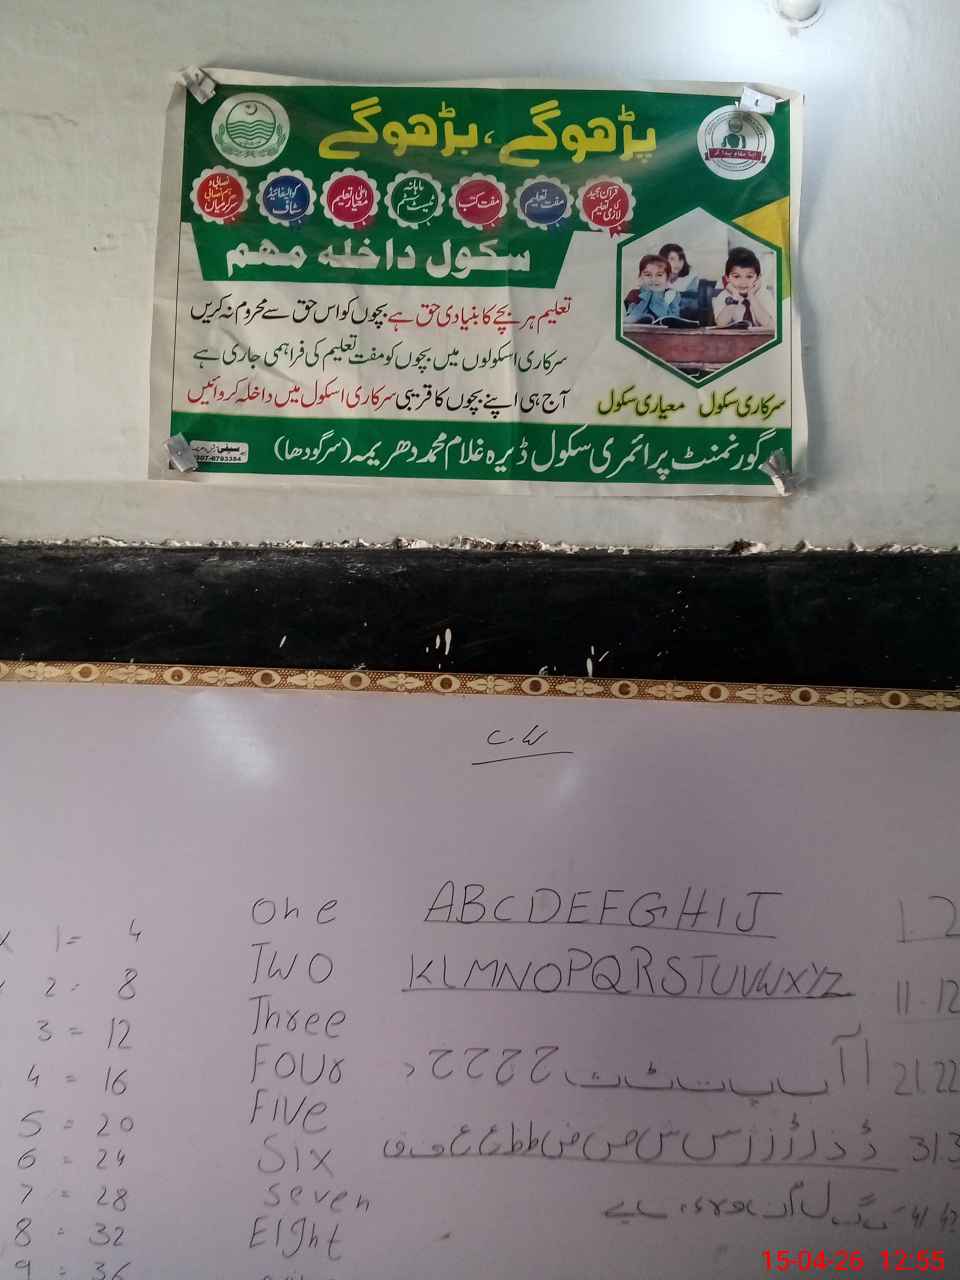 پڑھو گے، بڑھو گے
قرآن مجید کی لازمی تعلیم
مفت تعلیم
مفت کتب
ماہانہ ٹیسٹ سسٹم
اعلیٰ معیار تعلیم
کوالیفائیڈ سٹاف
نصابی و ہم نصابی سرگرمیاں
سکول داخلہ مہم
تعلیم ہر بچے کا بنیادی حق ہے بچوں کو اس حق سے محروم نہ کریں
سرکاری اسکولوں میں بچوں کو مفت تعلیم کی فراہمی جاری ہے
آج ہی اپنے بچوں کا قریبی سرکاری اسکول میں داخلہ کروائیں
سرکاری سکول معیاری سکول
گورنمنٹ پرائمری سکول ڈیرہ غلام محمد دھریمہ (سرگودھا)
C.W
1 = 4
2 = 8
3 = 12
4 = 16
5 = 20
6 = 24
7 = 28
8 = 32
9 = 36
One
Two
Three
Four
Five
Six
Seven
Eight
ABCDEFGHIJ
KLMNOPQRSTUVWXYZ
ا آ ب پ ت ٹ ث ج چ ح خ د
ڈ ذ ر ڑ ز ژ س ش ص ض ط ظ ع غ ف ق
1.2
11.12
21.22
31.3
41.42
15-04-26 12:55